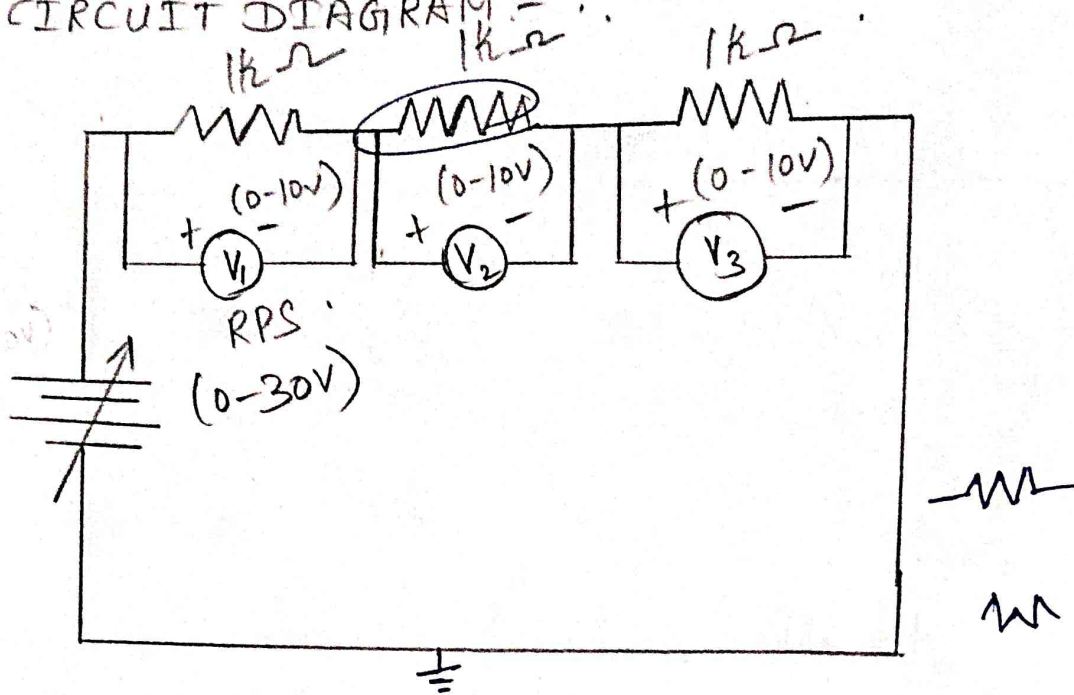 CIRCUIT DIAGRAM :-
1k Ω 1k Ω 1k Ω
(0-10V) (0-10V) (0-10V)
+ - + - + -
V1 V2 V3
RPS
(0-30V)